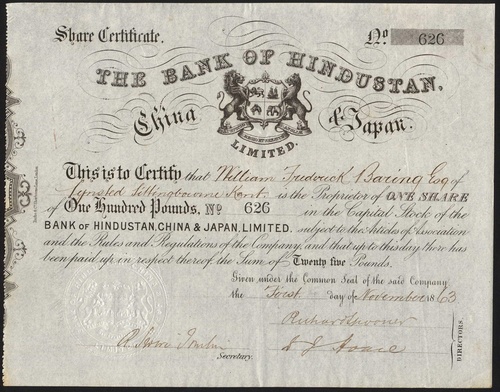 Share Certificate.
No 626
THE BANK OF HINDUSTAN,
China & Japan.
LIMITED.
This is to Certify that William Frederick Baring Esq of
Lynsted Sittingbourne Kent. is the Proprietor of ONE SHARE
of One Hundred Pounds, No 626 in the Capital Stock of the
BANK OF HINDUSTAN, CHINA & JAPAN, LIMITED. subject to the Articles of Association
and the Rules and Regulations of the Company, and that up to this day there has
been paid up in respect thereof the Sum of Twenty five Pounds.
Given under the Common Seal of the said Company
the First day of November 1863
Richard Spooner
Secretary.
DIRECTORS.